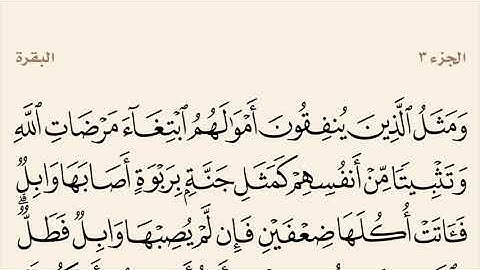 الجزء ٣
البقرة
وَمَثَلُ ٱلَّذِينَ يُنفِقُونَ أَمْوَٰلَهُمُ ٱبْتِغَآءَ مَرْضَاتِ ٱللَّهِ
وَتَثْبِيتًا مِّنْ أَنفُسِهِمْ كَمَثَلِ جَنَّةٍۭ بِرَبْوَةٍ أَصَابَهَا وَابِلٌ
فَـَٔاتَتْ أُكُلَهَا ضِعْفَيْنِ فَإِن لَّمْ يُصِبْهَا وَابِلٌ فَطَلٌّ ۗ